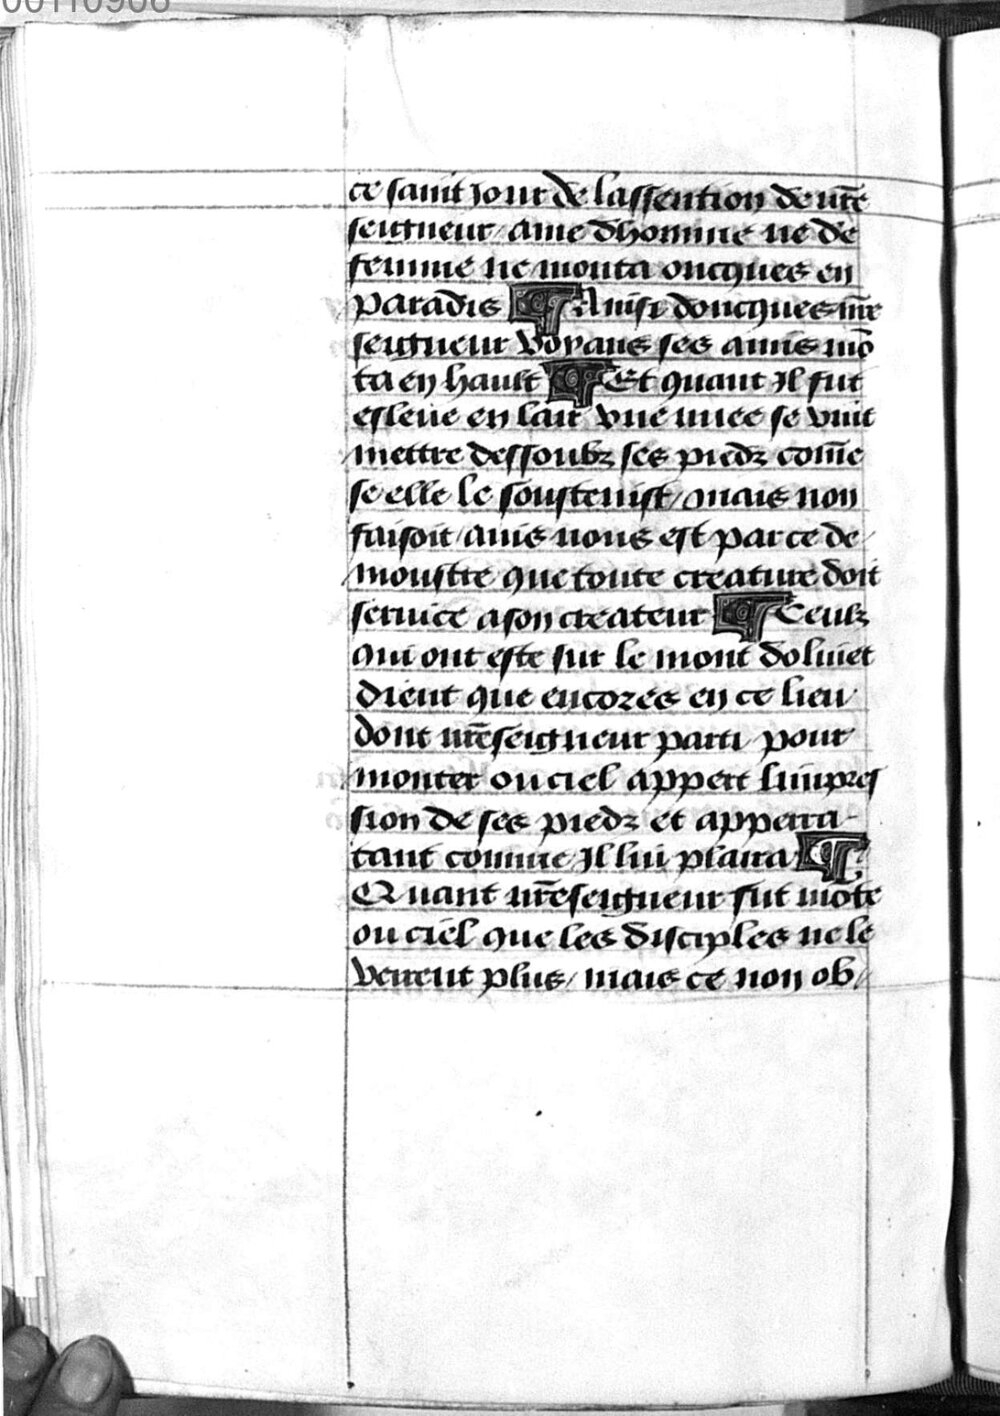 00110908
ce saint Jour de lassention de nr̃e
seigneur / ame dhomme ne de
femme ne monta oncques en
paradis ¶ Ainsi doncques nr̃e
seigneur voyans ses amis mõ
ta en hault ¶ Et quant Il fut
esleue en lair vne nuee se vint
mettre dessoubz ses piedz com̃e
se elle le soustenist / mais non
faisoit / ains nous est par ce de/
moustre que toute creature doit
seruice a son createur ¶ Ceulz
qui ont este sur le mont doliuet
dient que encores en ce lieu
dont nr̃eseigneur parti / pour
monter ou ciel appert limpres
sion de ses piedz et apperra
tant comme Il lui plaira ¶
Quant nr̃eseigneur fut mõte
ou ciel que les disciples ne le
veirent plus / mais ce non ob/